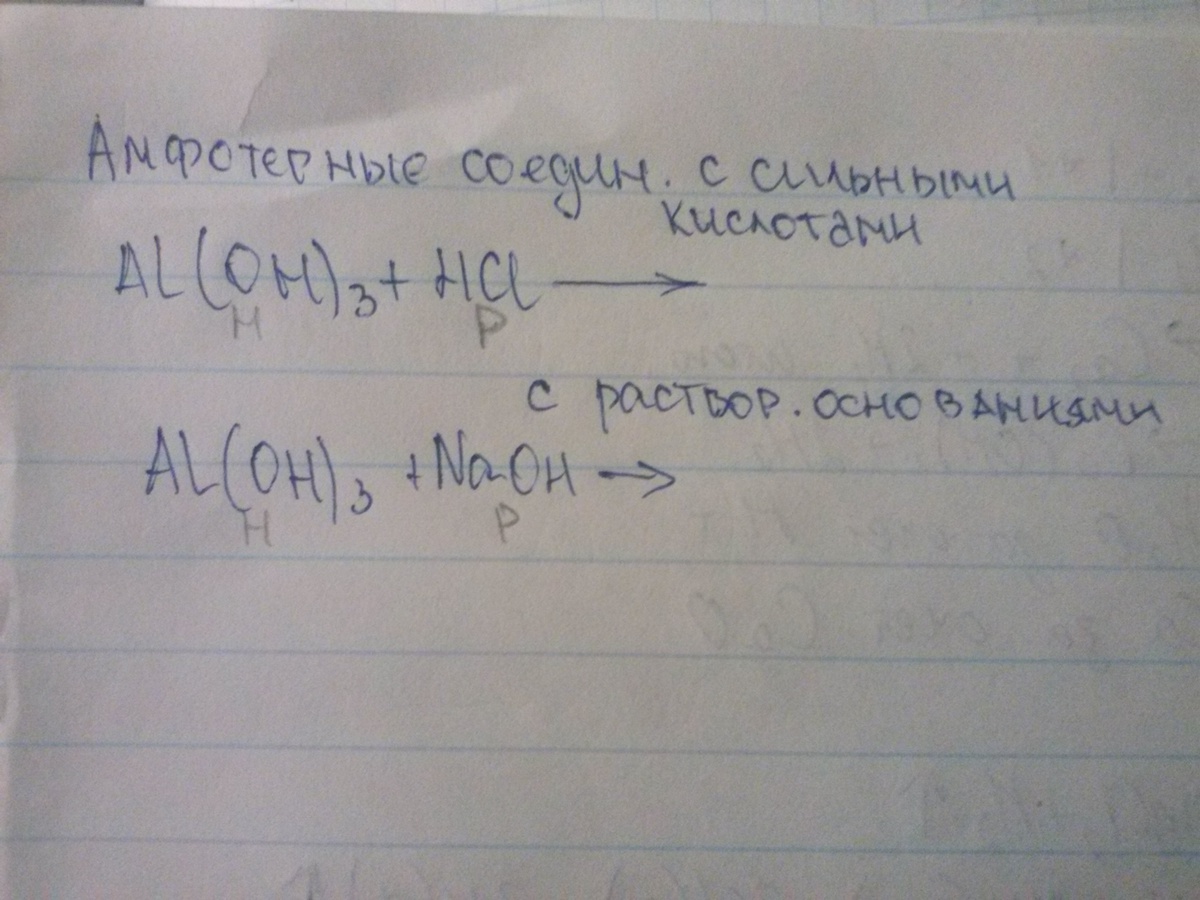 Амфотерные соедин. с сильными
кислотами
Al(OH)3 + HCl ⟶
Н Р
с раствор. основаниями
Al(OH)3 + NaOH →
Н Р